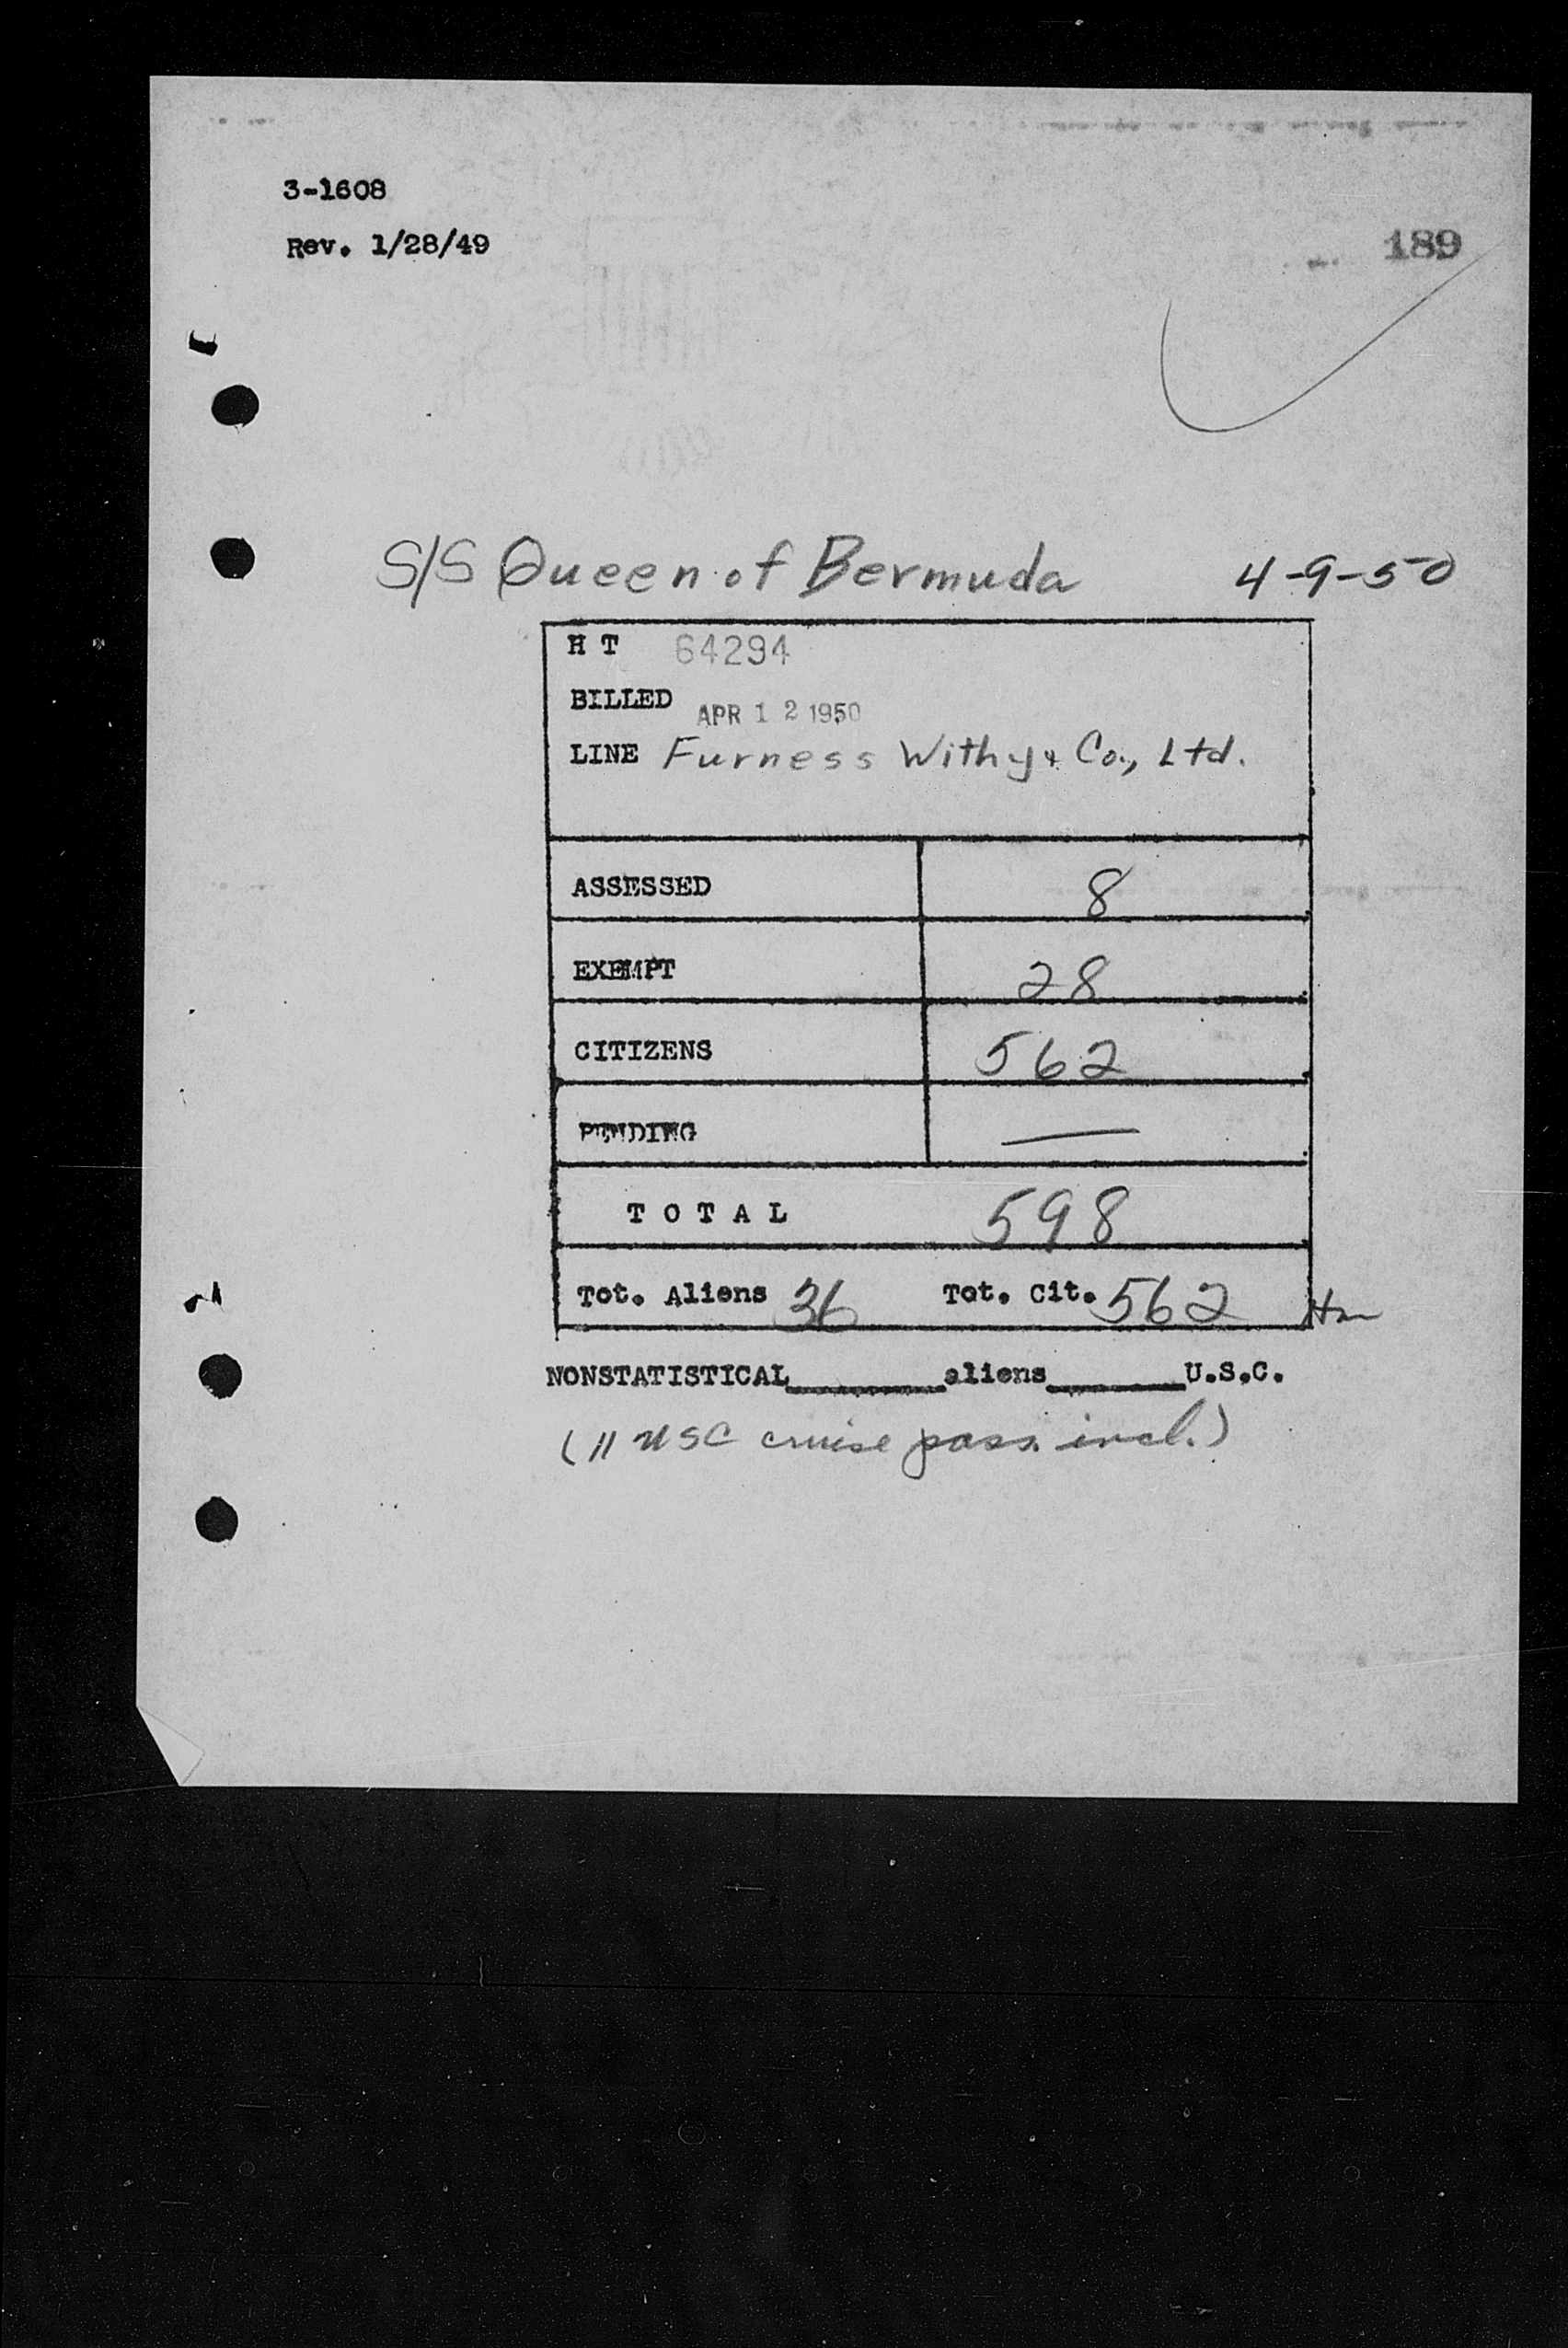 3-1608
Rev. 1/28/49
189
S/S Queen of Bermuda 4-9-50
H T 64294
BILLED APR 12 1950
LINE Furness Withy & Co., Ltd.
ASSESSED 8
EXEMPT 28
CITIZENS 562
PENDING —
T O T A L 598
Tot. Aliens 36 Tot. Cit. 562
NONSTATISTICAL________aliens_______U.S.C.
(11 USC cruise pass. incl.)